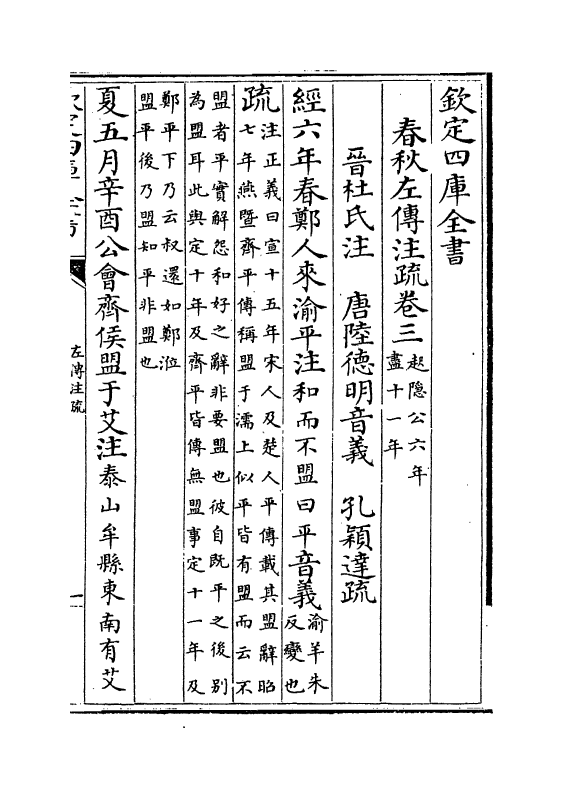 欽定四庫全書
春秋左傳注疏卷三
起隱公六年
盡十一年
晉杜氏注　唐陸德明音義　孔穎達疏
經六年春鄭人來渝平注和而不盟曰平音義
渝羊朱
反變也
疏
注正義曰宣十五年宋人及楚人平傳載其盟辭昭
七年燕暨齊平傳稱盟于濡上似平皆有盟而云不
盟者平實解怨和好之辭非要盟也彼自既平之後別
為盟耳此與定十年及齊平皆傳無盟事定十一年及
鄭平下乃云叔還如鄭涖
盟平後乃盟知平非盟也
夏五月辛酉公會齊侯盟于艾注泰山牟縣東南有艾
左傳注疏
一